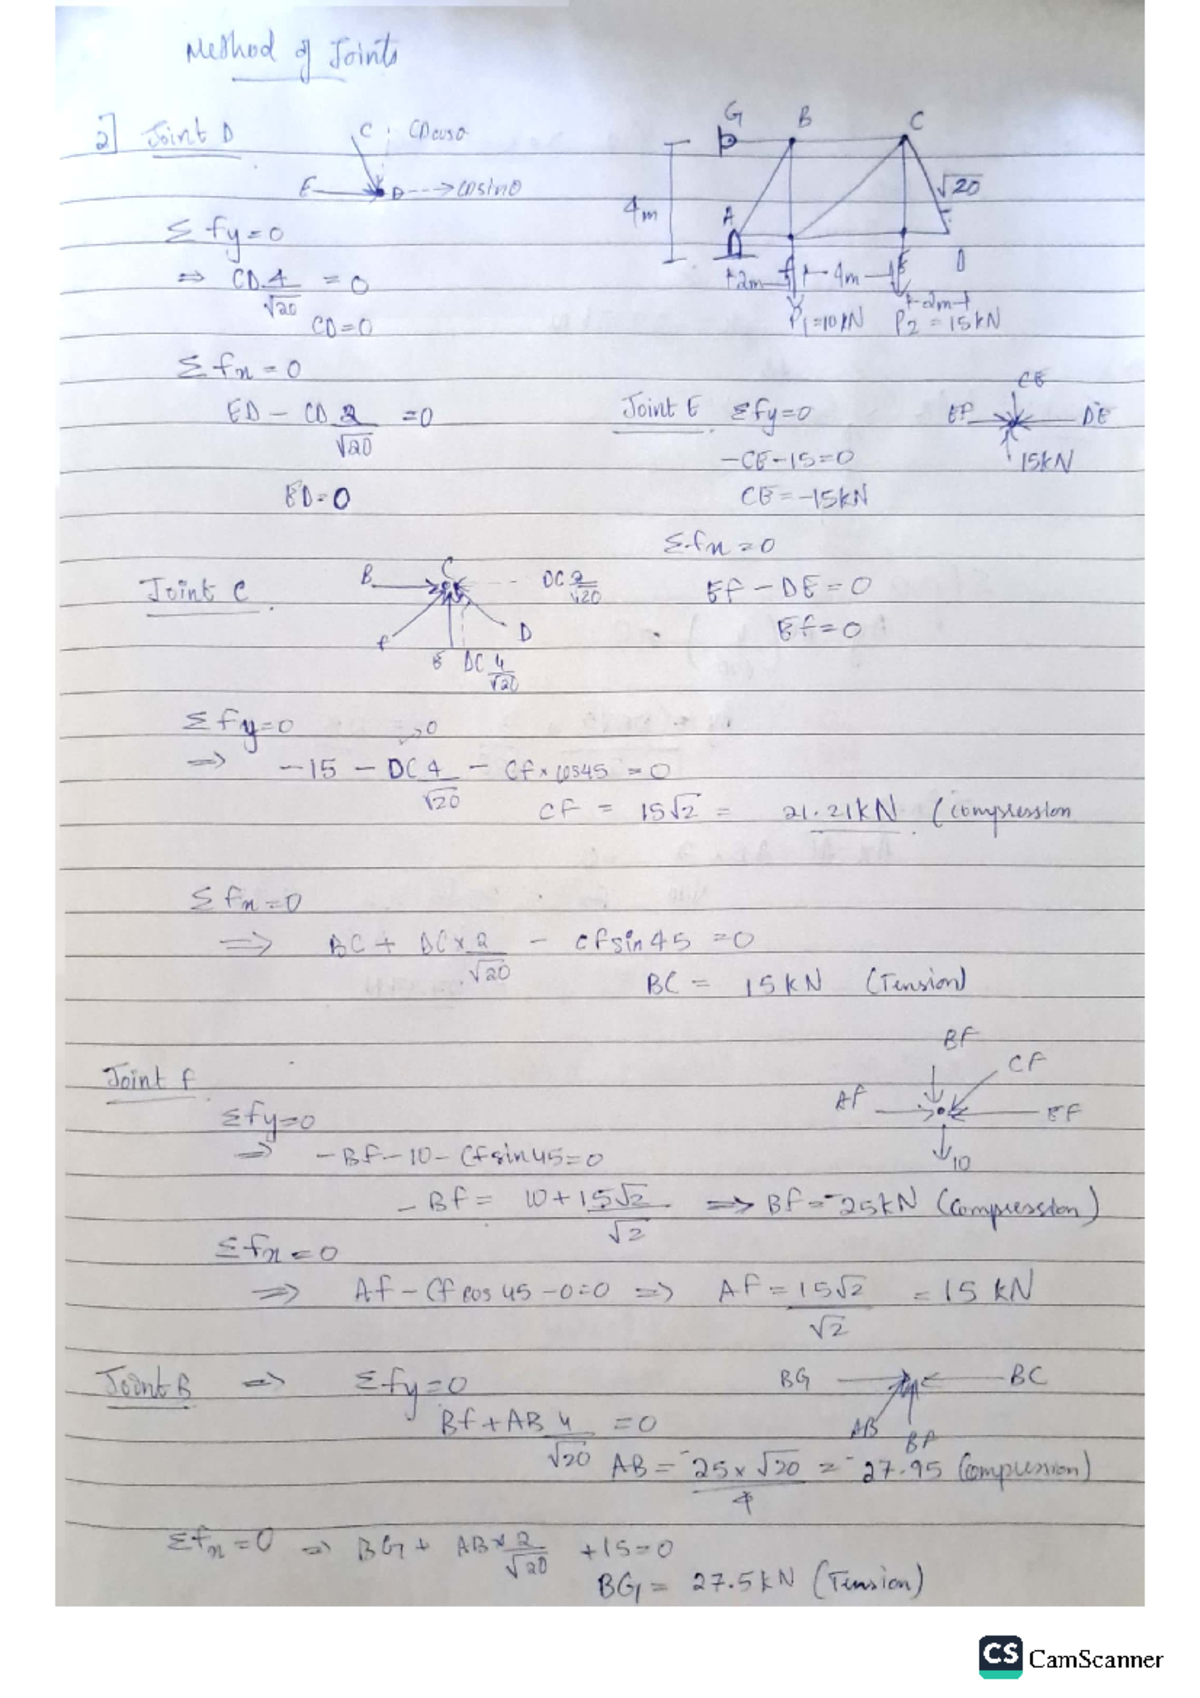 Method of Joints
2] Joint D
C CDcosθ
E D CDsinθ
Σfy=0
⇒ CD 4/√20 = 0
CD=0
Σfx=0
ED - CD 2/√20 =0
ED=0
G B C
√20
4m
A
D
2m 4m E
2m
P1=10kN P2=15kN
Joint E Σfy=0
CE
EF DE
15kN
-CE-15=0
CE=-15kN
Σfx=0
Ef-DE=0
Ef=0
Joint C
B C DC 2/√20
F D
E DC 4/√20
Σfy=0 0
⇒ -15 - DC 4/√20 - Cf×cos45 =0
CF = 15√2 = 21.21kN (compression
Σfx=0
⇒ BC + DC×2/√20 - Cfsin45 =0
BC = 15kN (Tension)
Joint f
BF
CF
AF
EF
10
Σfy=0
⇒ -Bf-10-Cfsin45=0
-Bf = 10+15√2/√2 ⇒ Bf=-25kN (Compression)
Σfx=0
⇒ Af-Cfcos45-0=0 ⇒ AF=15√2/√2 = 15 kN
Joint B ⇒ Σfy=0
BG BC
AB BF
Bf+AB 4/√20 =0
AB = -25×√20/4 = -27.95 (Compression)
Σfx=0 ⇒ BG+ AB×2/√20 +15=0
BG = 27.5kN (Tension)
CS CamScanner